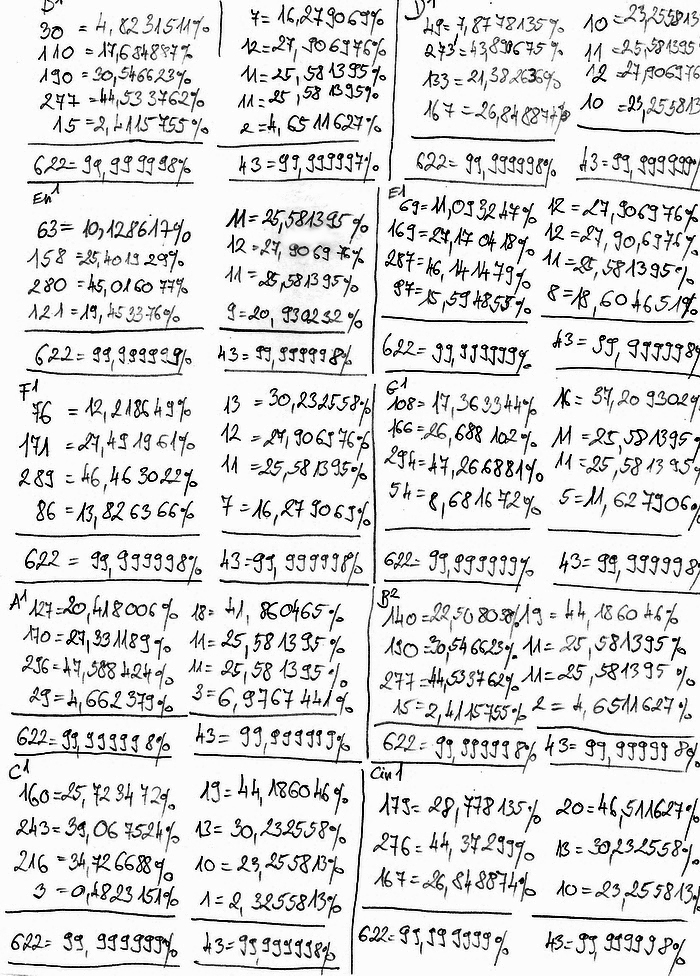 B1
30 = 4,8231511%
110 = 17,684887%
190 = 30,546623%
277 = 44,533762%
15 = 2,4115755%
622 = 99,999998%
7 = 16,279069%
12 = 27,906976%
11 = 25,581395%
11 = 25,581395%
2 = 4,6511627%
43 = 99,999997%
D1
49 = 7,8778135%
273 = 43,890675%
133 = 21,382636%
167 = 26,848874%
622 = 99,999998%
10 = 23,25581
11 = 25,581395
12 = 27,906976
10 = 23,25581
43 = 99,999999%
En1
63 = 10,128617%
158 = 25,401929%
280 = 45,016077%
121 = 19,453376%
622 = 99,999999%
11 = 25,581395%
12 = 27,906976%
11 = 25,581395%
9 = 20,930232%
43 = 99,999998%
E1
69 = 11,093247%
169 = 27,170418%
287 = 46,141479%
97 = 15,594855%
622 = 99,999999%
12 = 27,906976%
12 = 27,90,6976%
11 = 25,581395%
8 = 18,604651%
43 = 99,999998%
F1
76 = 12,218649%
171 = 27,491961%
289 = 46,463022%
86 = 13,826366%
622 = 99,999998%
13 = 30,232558%
12 = 27,906976%
11 = 25,581395%
7 = 16,279069%
43 = 99,999998%
G1
108 = 17,363344%
166 = 26,688102%
294 = 47,266881%
54 = 8,681672%
622 = 99,999999%
16 = 37,209302%
11 = 25,581395%
11 = 25,581395%
5 = 11,627906%
43 = 99,999998%
A1
127 = 20,418006%
170 = 27,331189%
296 = 47,588424%
29 = 4,662379%
622 = 99,999998%
18 = 41,860465%
11 = 25,581395%
11 = 25,581395%
3 = 6,9767441%
43 = 99,999999%
B2
140 = 22,508038%
190 = 30,546623%
277 = 44,533762%
15 = 2,4115755%
622 = 99,999998%
19 = 44,186046%
11 = 25,581395%
11 = 25,581395%
2 = 4,6511627%
43 = 99,999998%
C1
160 = 25,723472%
243 = 39,067524%
216 = 34,726688%
3 = 0,4823151%
622 = 99,999999%
19 = 44,186046%
13 = 30,232558%
10 = 23,255813%
1 = 2,3255813%
43 = 99,999998%
Cin1
179 = 28,778135%
276 = 44,37299%
167 = 26,848874%
622 = 99,999999%
20 = 46,511627%
13 = 30,232558%
10 = 23,255813%
43 = 99,999998%